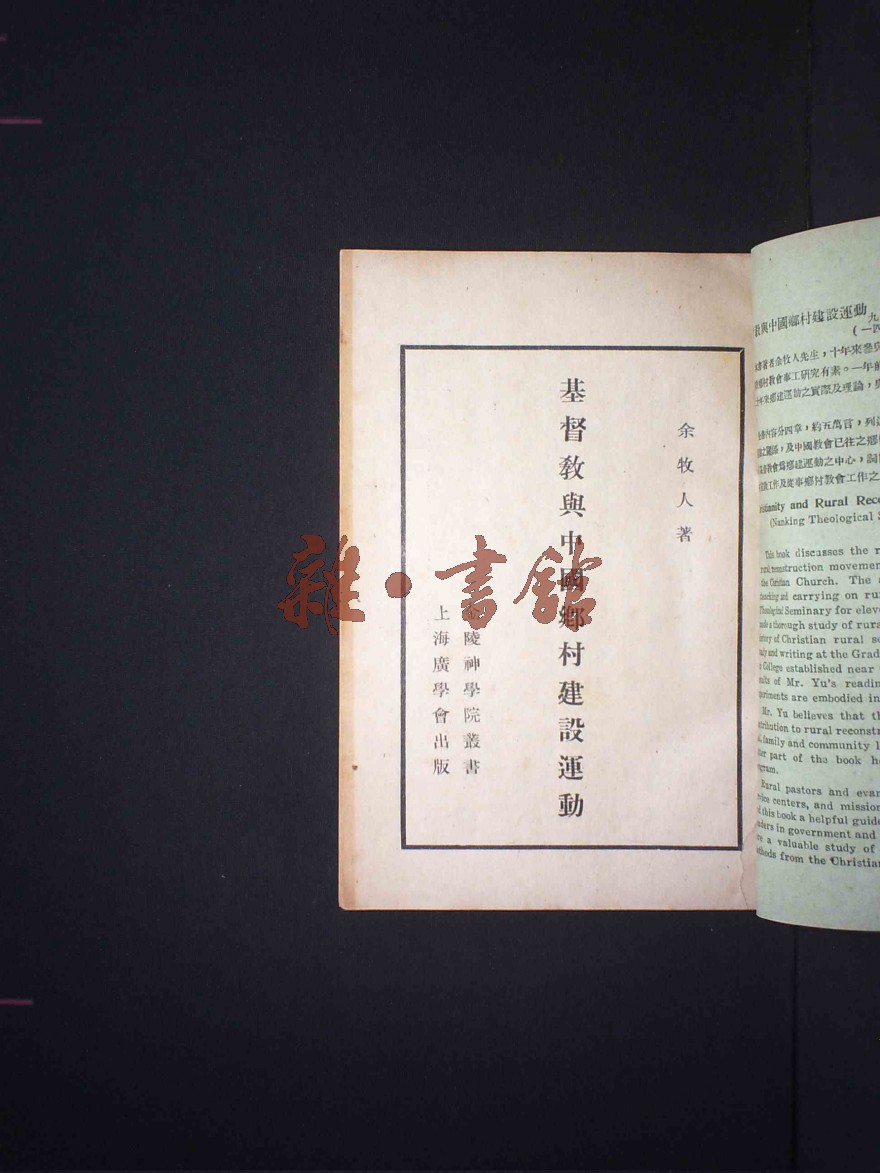 余牧人著
基督教與中國鄉村建設運動
金陵神學院叢書
上海廣學會出版
雜·書館
與中國鄉村建設運動
著者余牧人先生，十年來參與
鄉村教會事工研究有素。一年前
年來鄉建運動之實際及理論，與
內容分四章，約五萬言，列
之關係，及中國教會已往之鄉
教會為鄉建運動之中心，
工作及從事鄉村教會工作之
and Rural
(Nanking Theological
This book discusses the
rural reconstruction
the Christian Church. The
teaching and carrying on
Theological Seminary for
made a thorough study of
history of Christian rural
study and writing at the
College established near
results of Mr. Yu's
experiments are embodied in
Mr. Yu believes that
contribution to rural
family and community
part of the book
program.
Rural pastors and
service centers, and
this book a helpful
leaders in government and
a valuable study of
methods from the Christian